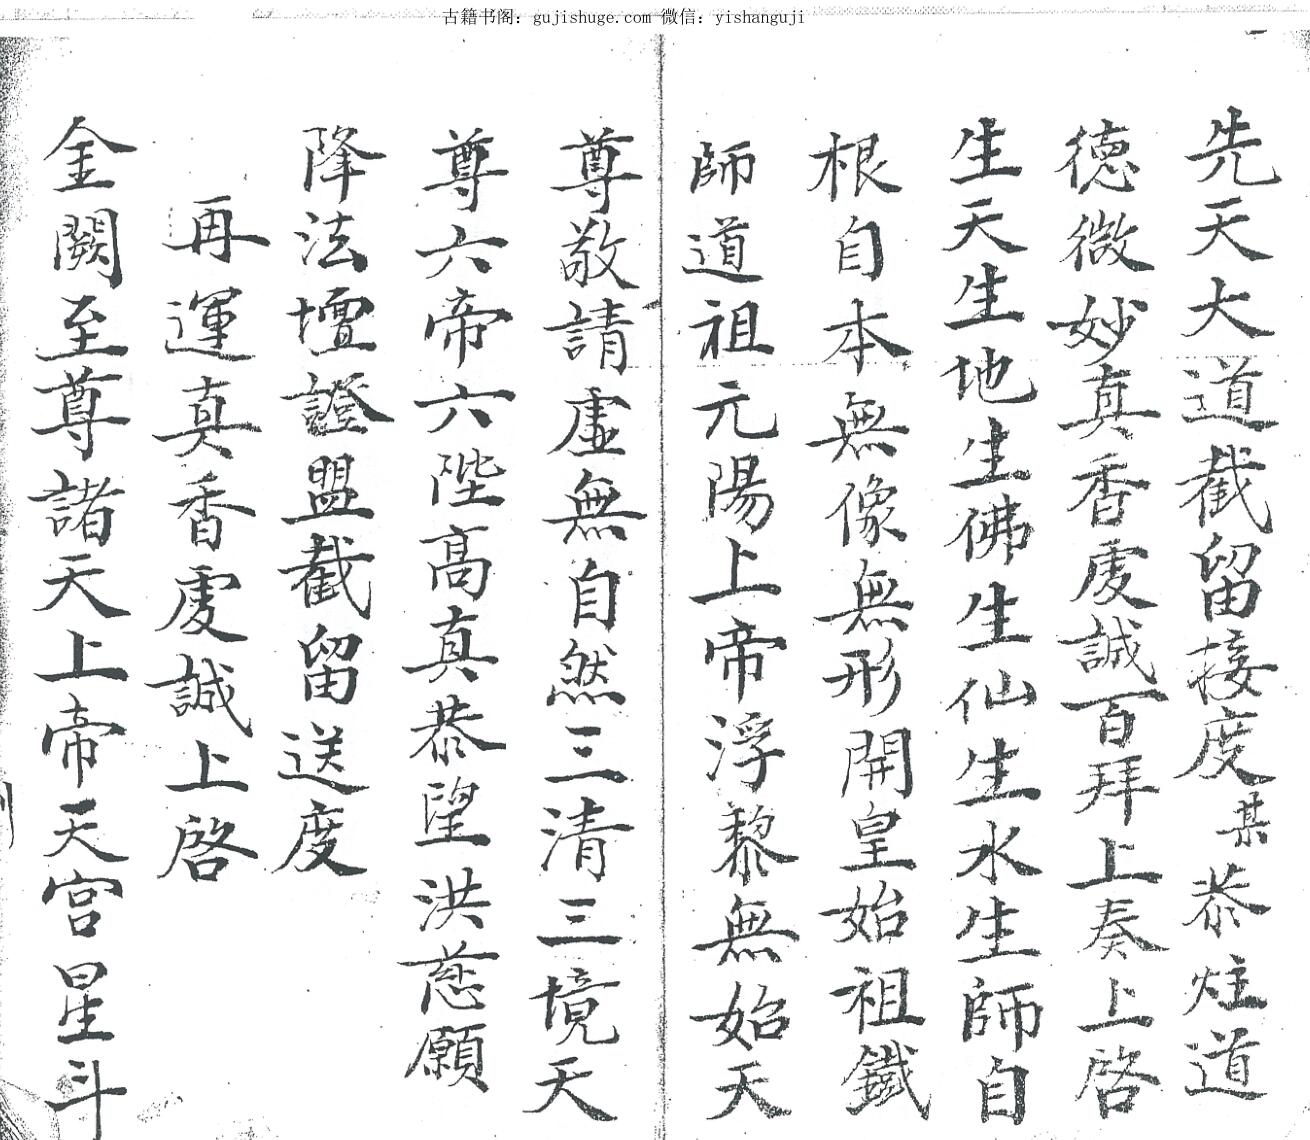 古籍书阁：gujishuge.com 微信：yishanguji
先天大道截留接度某恭炷道
德微妙真香虔誠百拜上奏上啓
生天生地生佛生仙生水生師自
根自本無像無形開皇始祖鐵
師道祖元陽上帝浮黎無始天
尊敬請虛無自然三清三境天
尊六帝六陛高真恭望洪慈願
降法壇證盟截留送度
再運真香虔誠上啓
金闕至尊諸天上帝天宮星斗